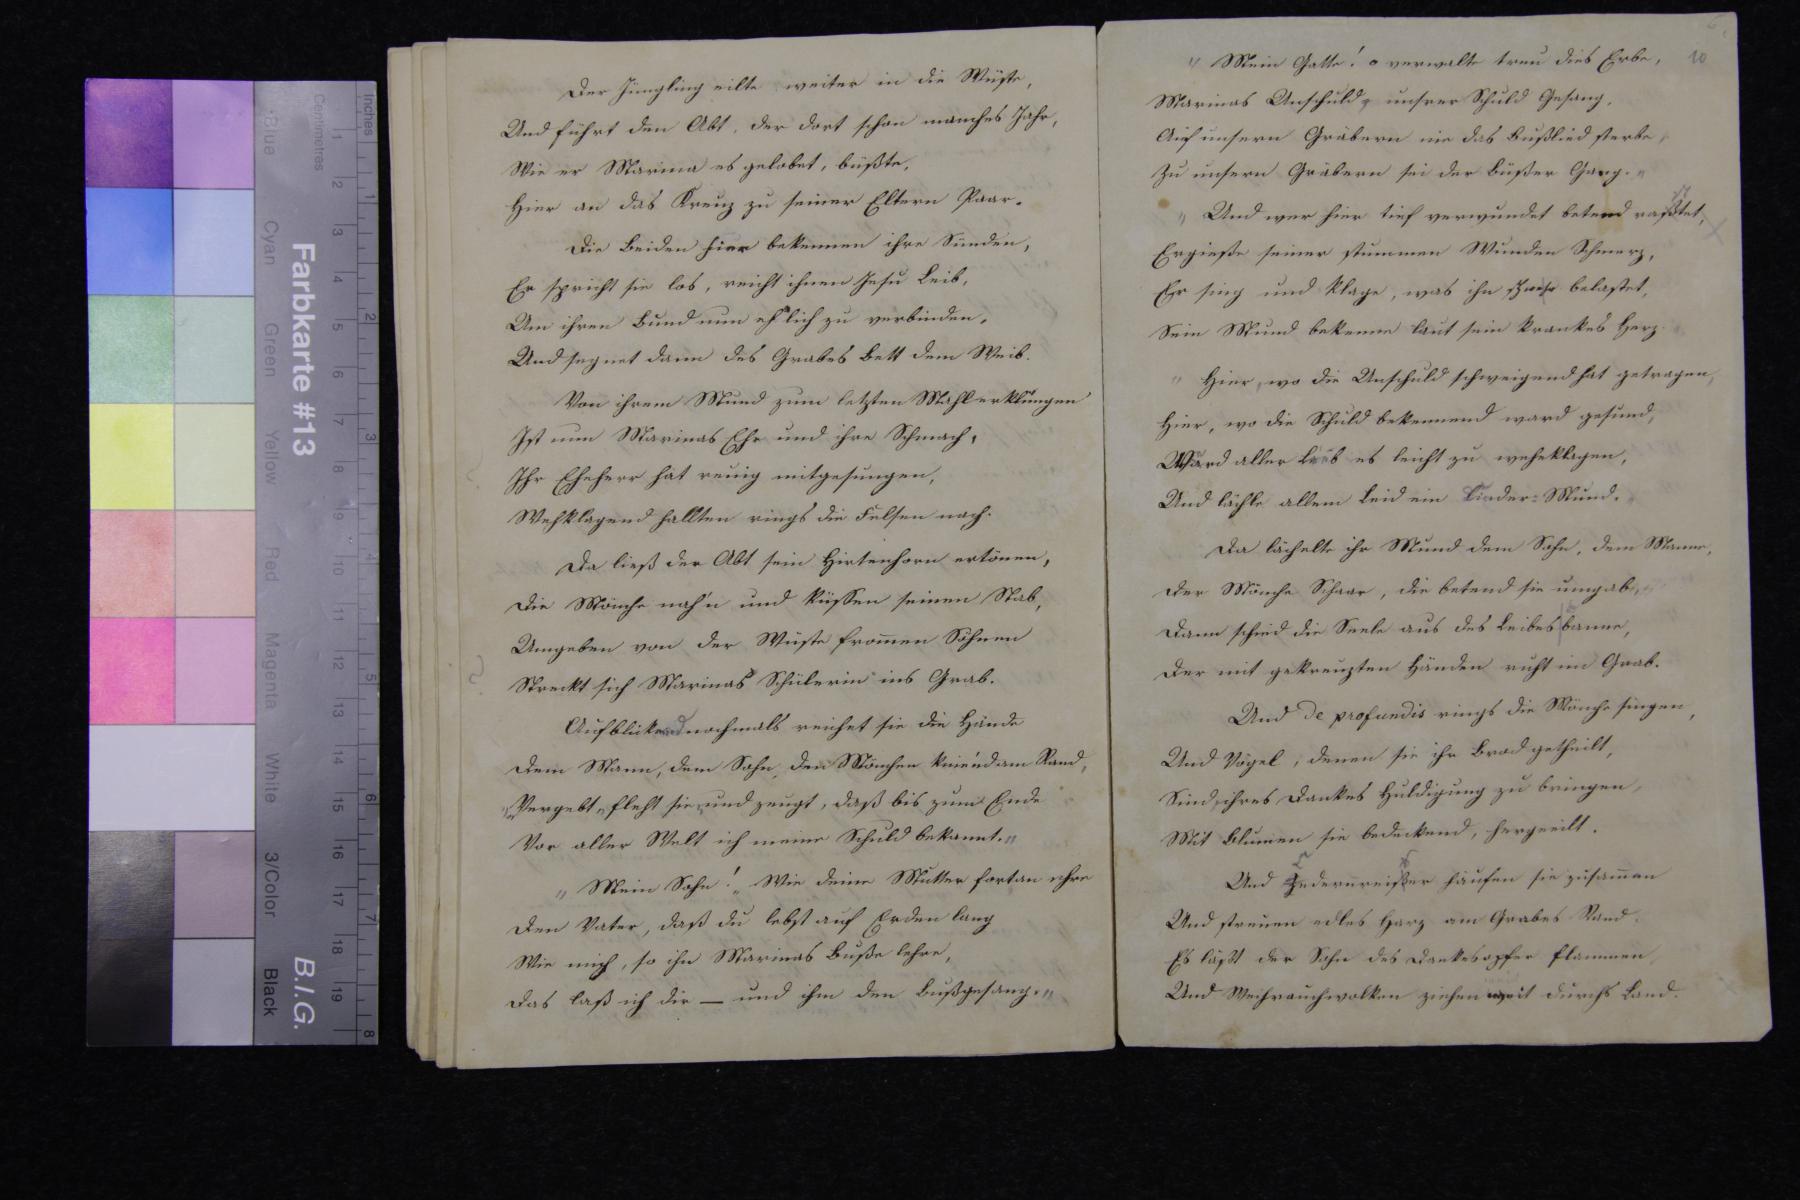 Der Jüngling eilte weiter in die Wüste,
Und führt den Abt, der dort schon manches Jahr,
Wie er Marina es gelobet, büßte,
Hier an das Kreuz zu seiner Eltern Paar.
Die Beiden hier bekennen ihre Sünden,
Er spricht sie los, reicht ihnen Jesu Leib,
Um ihren Bund nun ehlich zu verbinden,
Und segnet dann des Grabes Bett dem Weib.
Von ihrem Mund zum letzten Mahl erklungen
Ist nun Marinas Ehr und ihre Schmach,
Ihr Eheherr hat reuig mitgesungen,
Wehklagend hallten rings die Felsen nach.
Da ließ der Abt sein Hirtenhorn ertönen,
Die Mönche nah'n und küssen seinen Stab,
Umgeben von der Wüste frommen Söhnen
Streckt sich Marinas Schülerin ins Grab.
Aufblickend nochmals reichet sie die Hände
Dem Mann, dem Sohn, den Mönchen knieend am Rand,
„Vergebt„ fleht sie „und zeugt, daß bis zum Ende
Vor aller Welt ich meine Schuld bekannt.„
„Mein Sohn! „Wie deine Mutter fortan ehre
Den Vater, daß du lebst auf Erden lang
Wie mich, so ihn Marinas Buße lehre,
Das laß ich dir — und ihm den Bußgesang.„
10
„Mein Gatte! o verwalte treu dies Erbe,
Marinas Unschuld, unsrer Schuld Gesang,
Auf unsern Gräbern nie das Bußlied sterbe,
Zu unsern Gräbern sei der Büßer Gang.„
„Und wer hier tief verwundet betend rastet,
Ergieße seiner stummen Wunden Schmerz,
Er sing und klage, was ihn schwer belastet,
Sein Mund bekenne laut sein krankes Herz.
„Hier, wo die Unschuld schweigend hat getragen,
Hier, wo die Schuld bekennend ward gesund,
Ward aller Lieb es leicht zu wehklagen,
Und lächle allem Leid ein Kinder=Mund.
Da lächelte ihr Mund dem Sohn, dem Manne,
Der Mönche Schaar, die betend sie umgab,
Dann schied die Seele aus des Leibes banne,
Der mit gekreuzten Händen ruht im Grab.
Und de profundis rings die Mönche singen,
Und Vögel, denen sie ihr Brod getheilt,
Sind, ihres Dankes Huldigung zu bringen,
Mit Blumen sie bedeckend, hergeeilt.
Und Cedernreiser häufen sie zusammen
Und streuen edles Harz am Grabes Rand.
Es läßt der Sohn des Dankesopfer flammen,
Und Weihrauchwolken ziehen weit durchs Land.